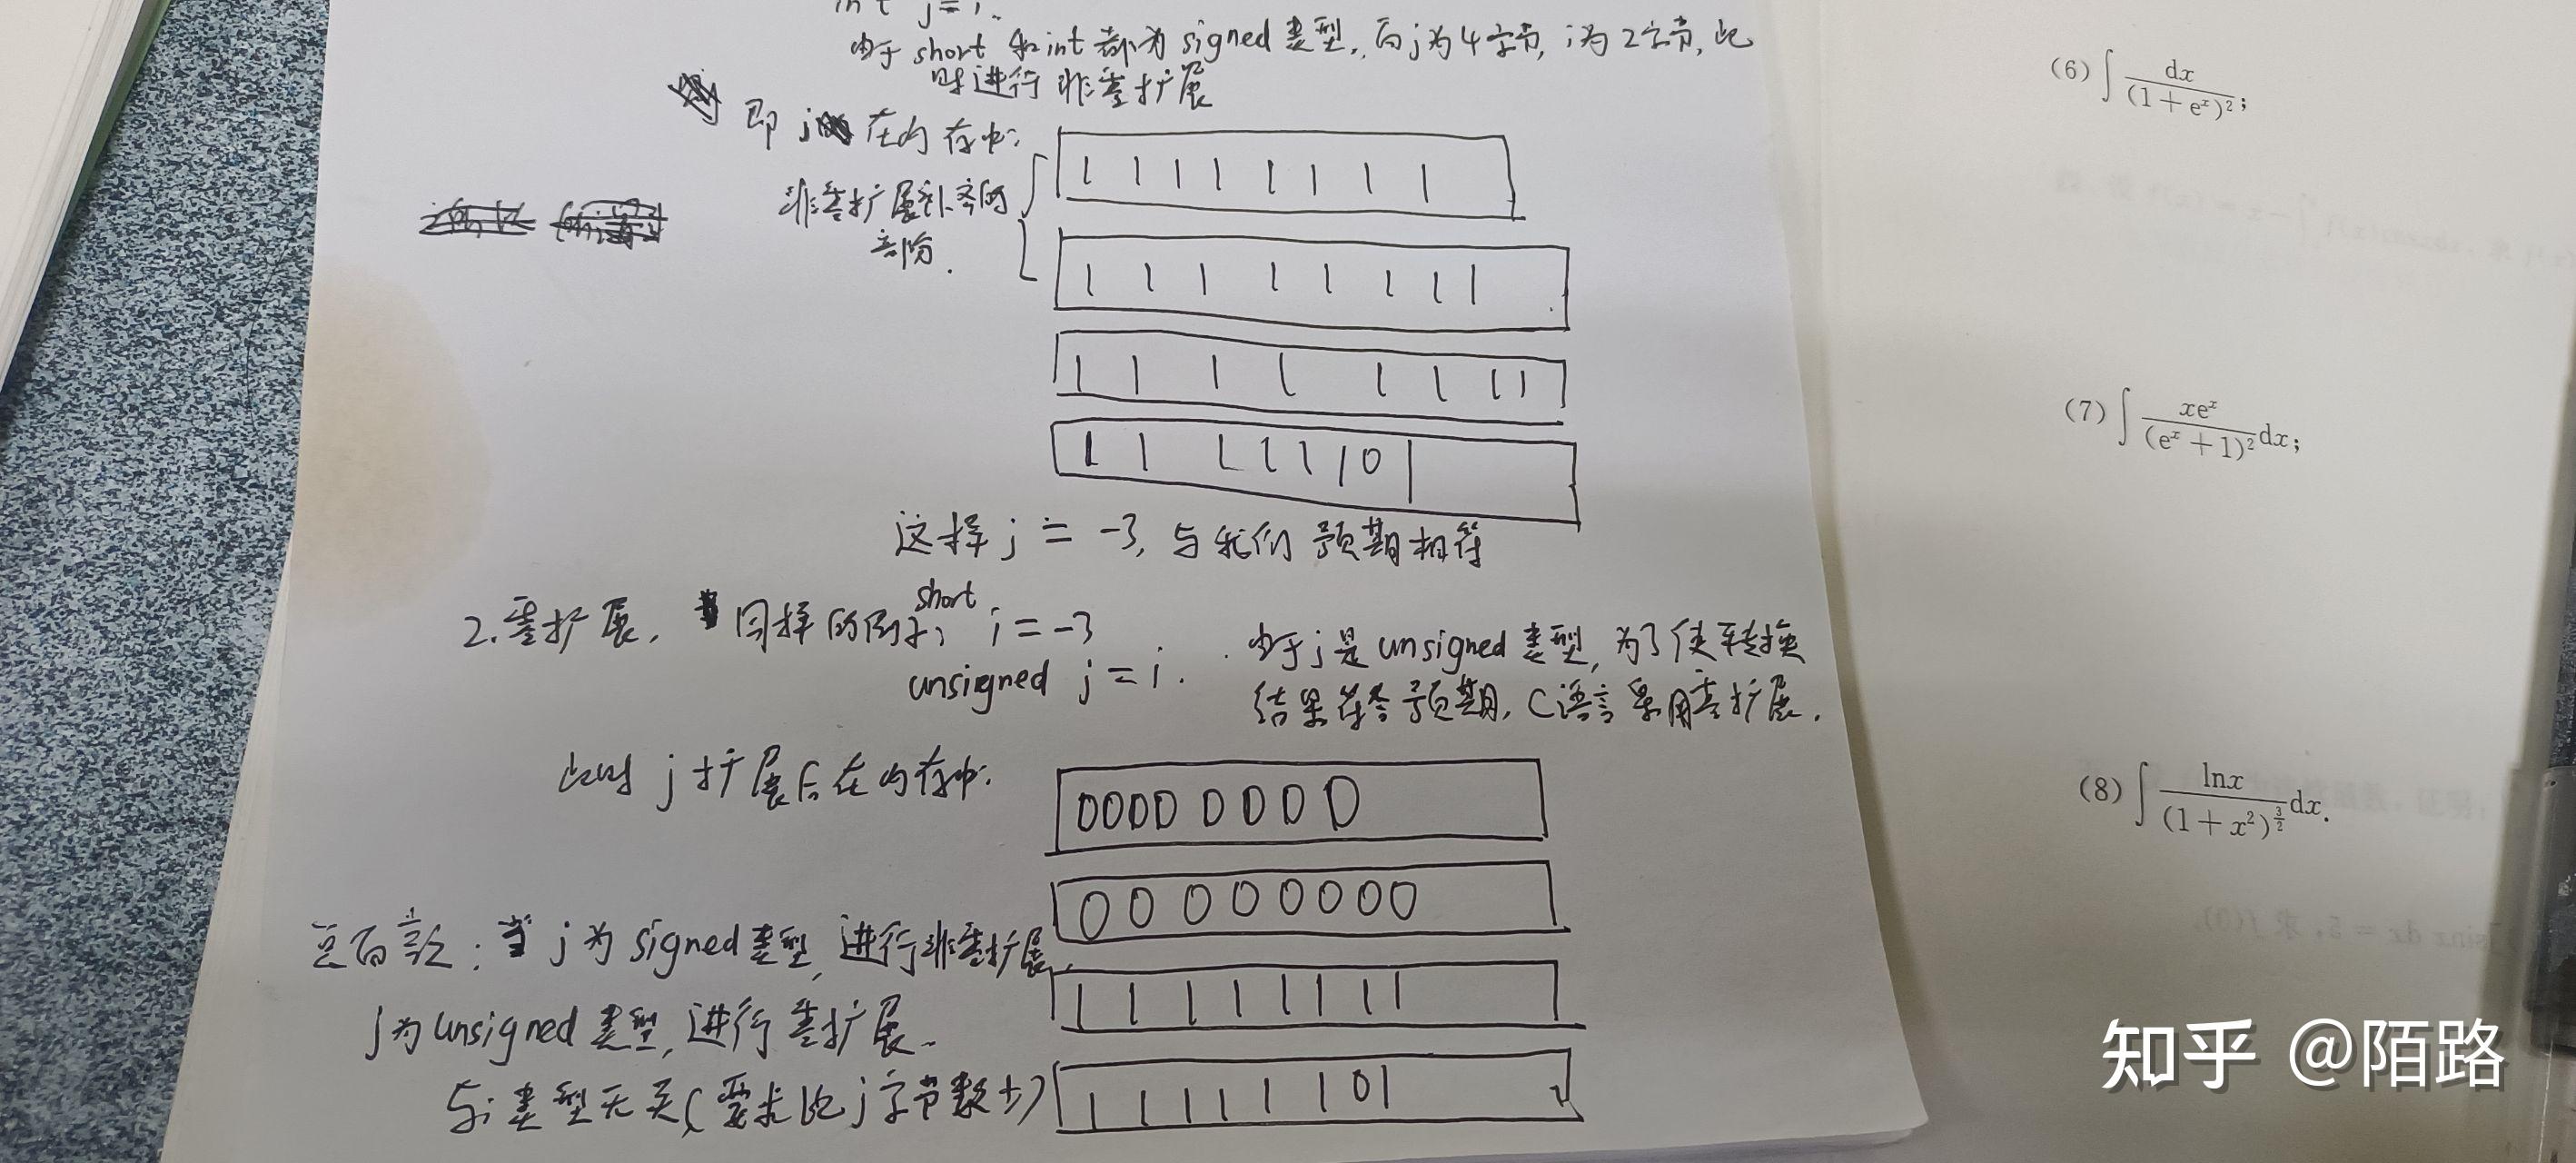 int j=i.
由于 short 和 int 都为 signed 类型, 而j为4字节, i为2字节, 此
时进行 非零扩展
即 j 在内存中:
非零扩展补齐的
部份.
1 1 1 1 1 1 1 1
1 1 1 1 1 1 1 1
1 1 1 1 1 1 1 1
1 1 1 1 1 1 0 1
这样 j = -3, 与我们 预期相符
2.零扩展, 同样的例子, short i = -3
unsigned j = i.
由于j是 unsigned 类型, 为了使转换
结果符合预期, C语言采用零扩展.
此时 j 扩展后在内存中:
0 0 0 0 0 0 0 0
0 0 0 0 0 0 0 0
1 1 1 1 1 1 1 1
1 1 1 1 1 1 0 1
总而言之: 当 j 为 signed 类型, 进行非零扩展,
j为 unsigned 类型, 进行零扩展.
与i类型无关(要求比j字节数少)
(6) ∫ dx/(1 + eˣ)²;
(7) ∫ xeˣ/(eˣ + 1)² dx;
(8) ∫ lnx/(1 + x²)^(3/2) dx.
知乎 @陌路